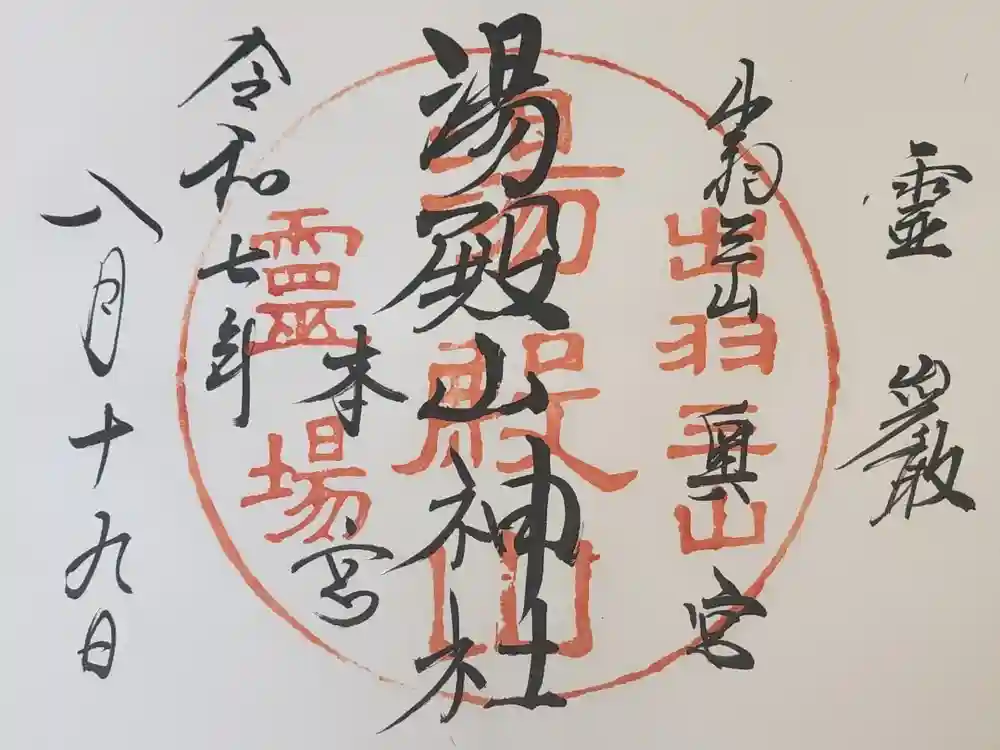 靈巌
出羽三山
奥宮
湯殿山神社
本宮
令和七年
八月十九日
出羽三山
湯殿山
靈場